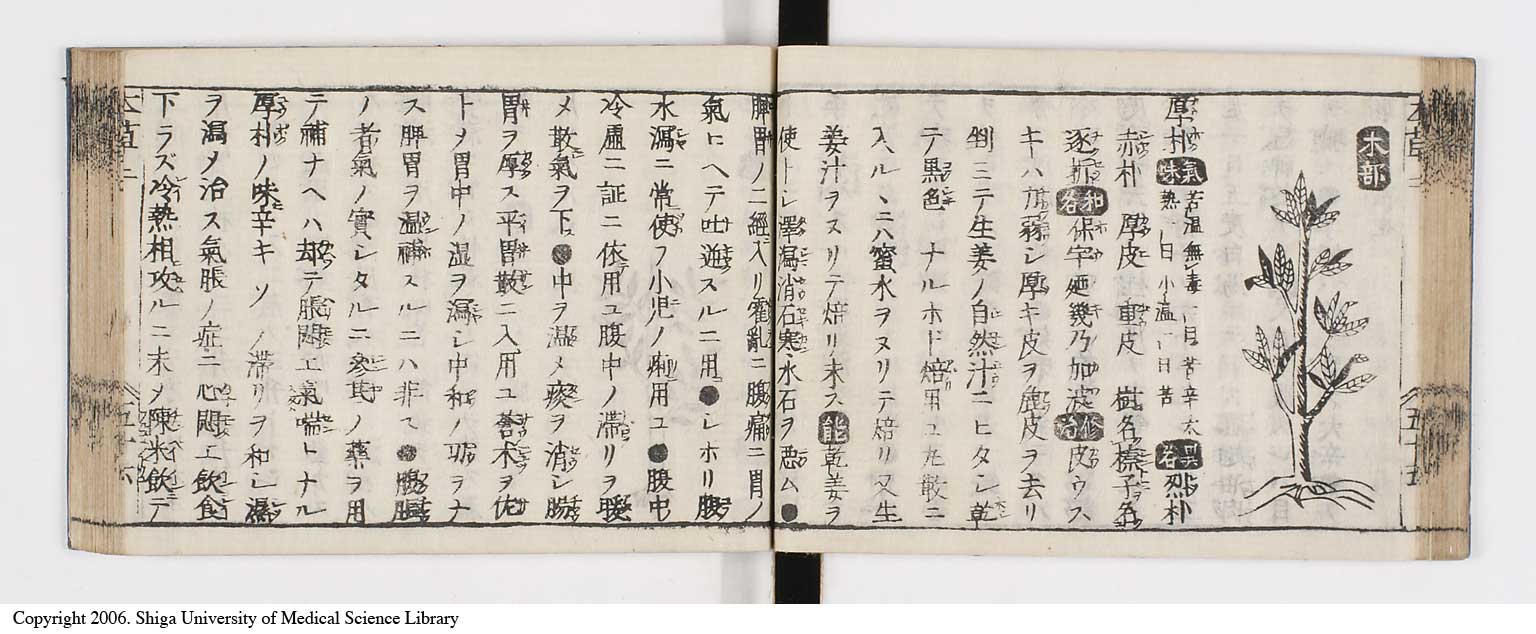 木部
厚朴 氣味 苦温無レ毒 一日苦辛大熱 一日小温 一日苦 異名 烈朴
赤朴 厚皮 重皮 樹名榛子名
逐折 和名 保宇廼幾乃加波 修治 皮ウス
キハ力弱シ厚キ皮ヲ麁皮ヲ去リ
剉ミテ生姜ノ自然汁ニヒタシ乾
テ黒色ナルホド焙用ユ丸散ニ
入ルヽニハ蜜水ヲヌリテ焙リ又生
姜汁ヲヌリテ焙リ末ス 能 乾姜ヲ
使トシ澤瀉消石寒水石ヲ悪ム●
脾胃ノ二經入リ霍亂ニ腹痛ニ胃ノ
氣ヒヘテ吐逆スルニ用●シホリ腹
水瀉ニ常使フ小児ノ痢用ユ●腹中
冷虚ニ証ニ依用ユ腹中ノ滞リヲ暖
メ散氣ヲ下ス●中ヲ温メ痰ヲ消シ腸
胃ヲ厚ス平胃散ニ入用ユ蒼术ヲ佐
トメ胃中ノ湿ヲ瀉シ中和ノ功ヲナ
ス脾胃ヲ温補スルニハ非ス●腹脹
ノ者氣ノ實シタルニ参芪ノ藥ヲ用
テ補ナヘハ却テ脹悶エ氣喘トナル
厚朴ノ味辛キソノ滞リヲ和シ濕
ヲ瀉メ治ス氣脹ノ症ニ心悶エ飲食
下ラズ冷熱相攻ルニ末メ陳米飲テ
本草二 五十五
五十六
Copyright 2006. Shiga University of Medical Science Library